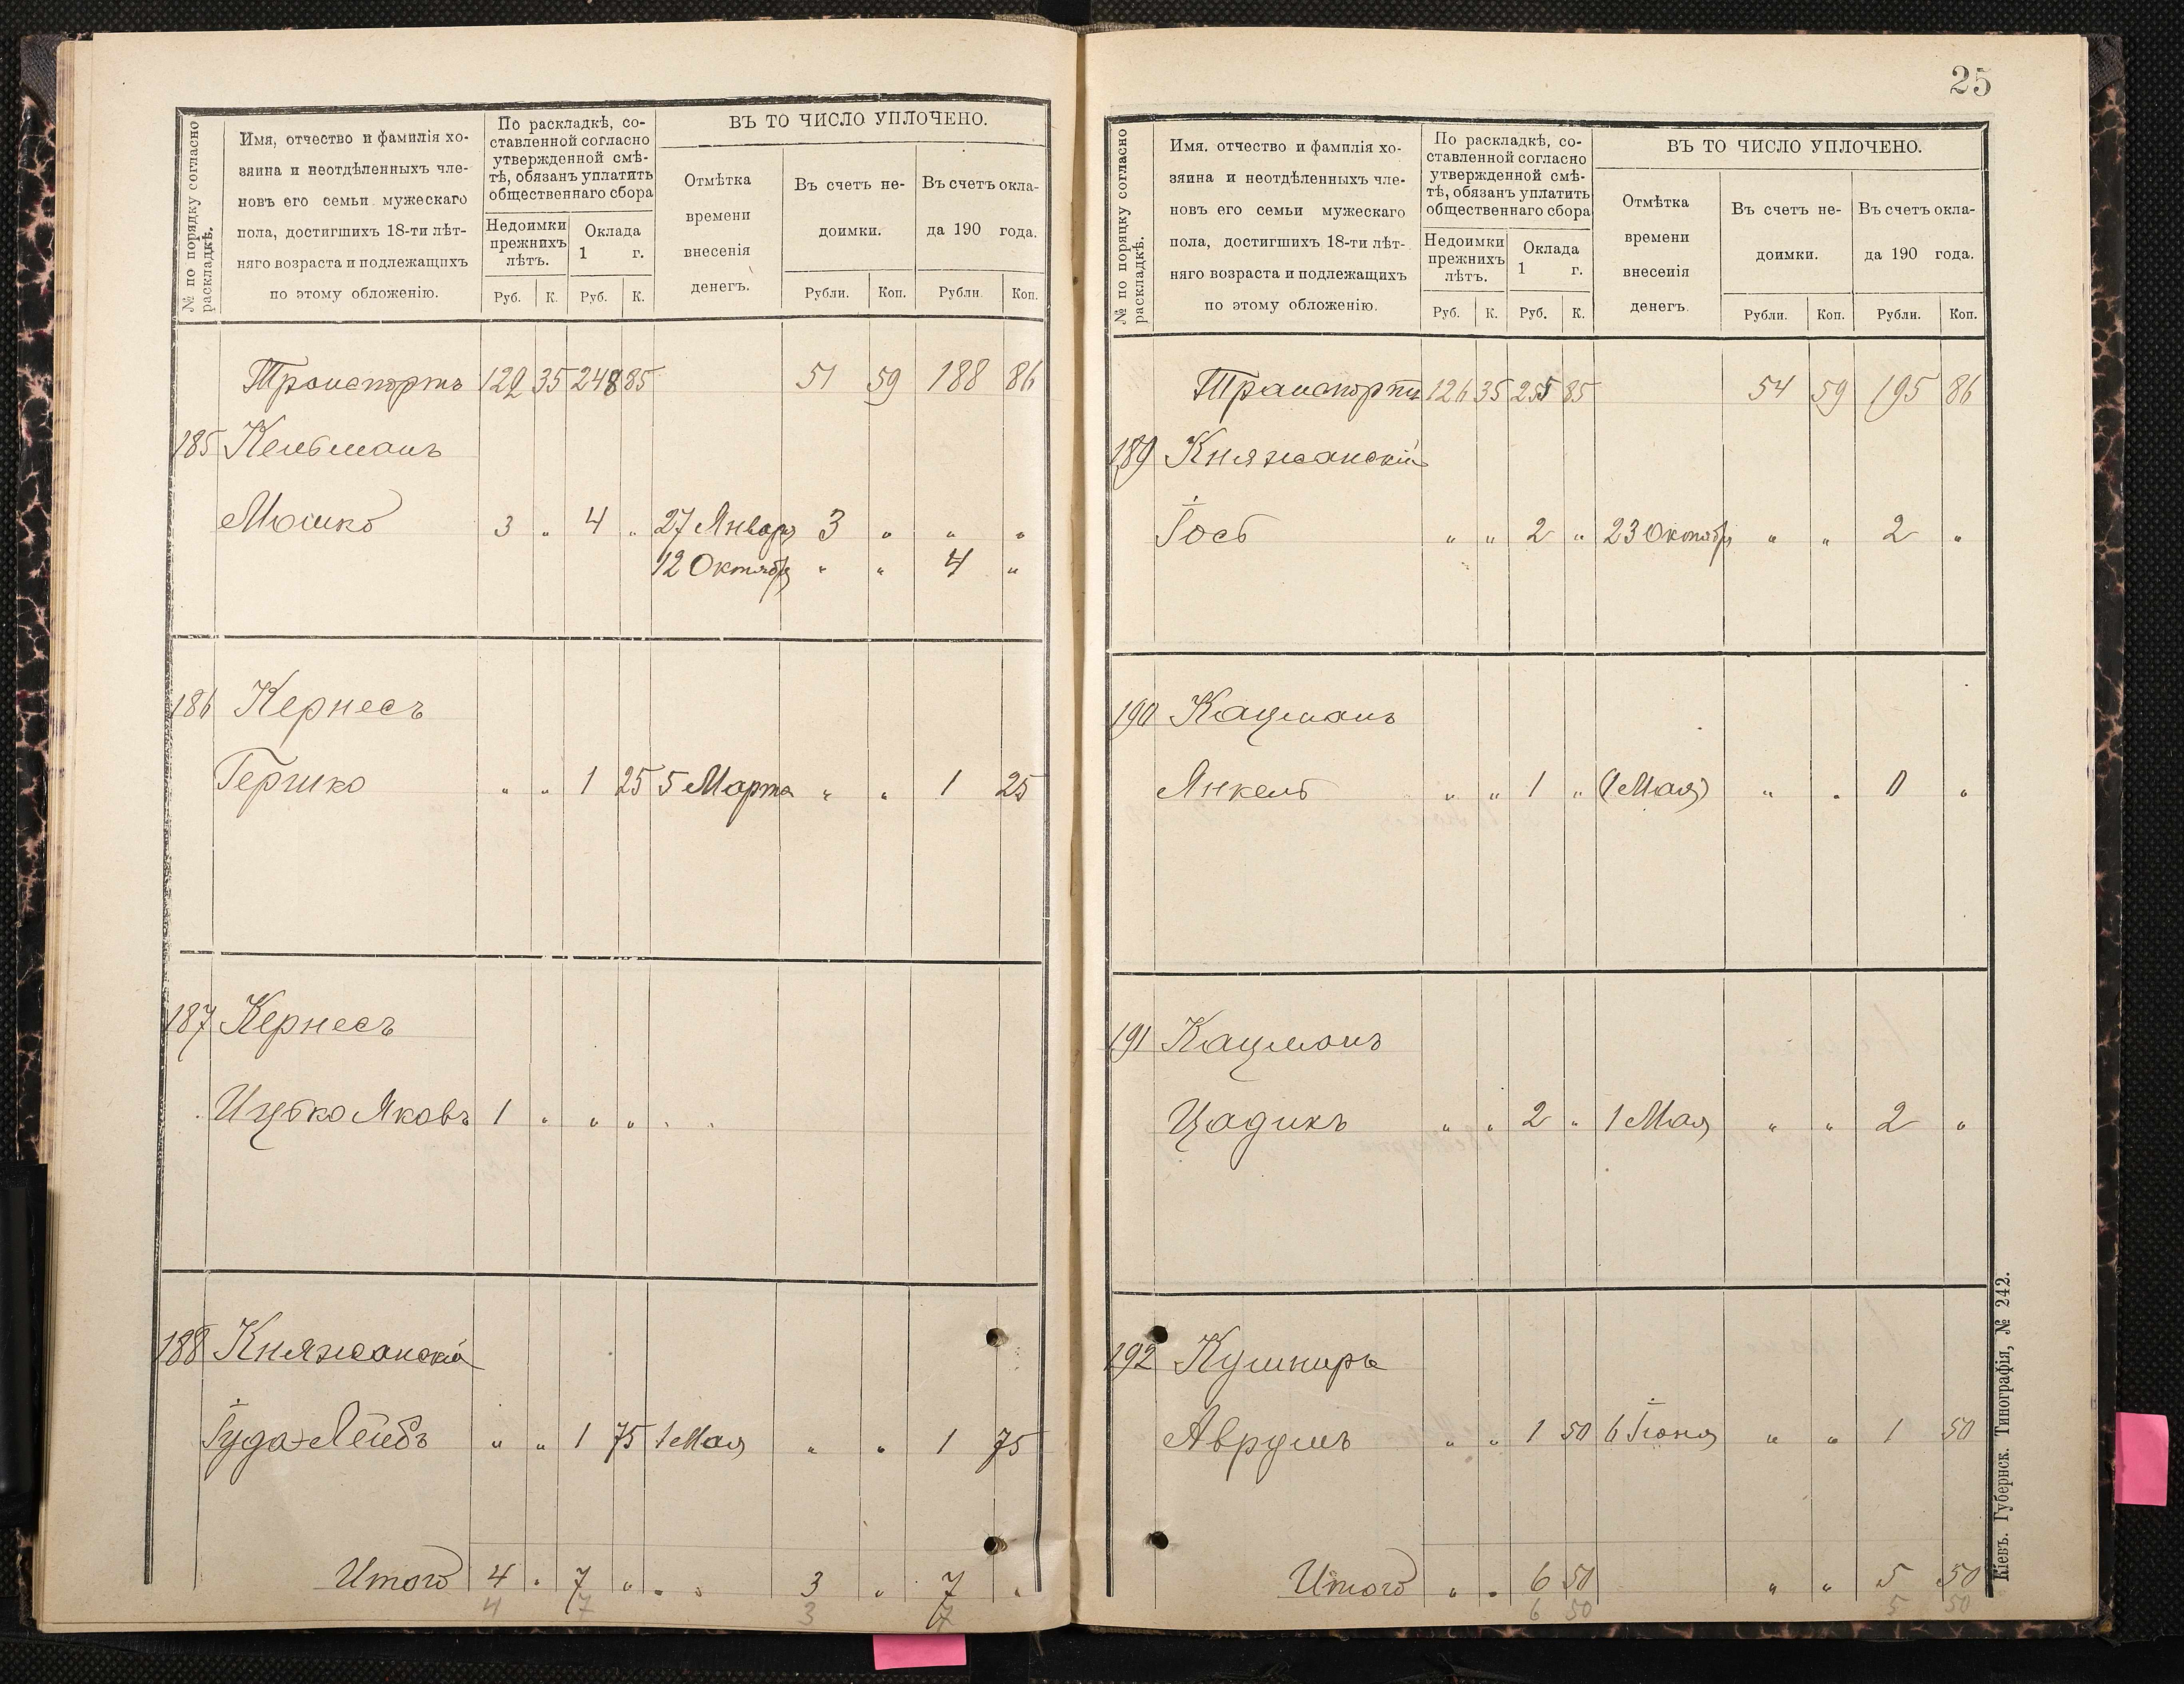 № по порядку согласно раскладкѣ.
Имя, отчество и фамилія хо-
зяина и неотдѣленныхъ чле-
новъ его семьи мужескаго
пола, достигшихъ 18-ти лѣт-
няго возраста и подлежащихъ
по этому обложенію.
По раскладкѣ, со-
ставленной согласно
утвержденной смѣ-
тѣ, обязанъ уплатить
общественнаго сбора
Недоимки
прежнихъ
лѣтъ.
Оклада
1 г.
Руб. К. Руб. К.
ВЪ ТО ЧИСЛО УПЛОЧЕНО.
Отмѣтка
времени
внесенія
денегъ.
Въ счетъ не-
доимки.
Въ счетъ окла-
да 190 года.
Рубли. Коп. Рубли. Коп.
Транспортъ 122 35 248 85 51 59 188 86
185 Кельманъ
Мошко 3 " 4 " 27 Января 3 " " "
12 Октября " " 4 "
186 Кернесъ
Гершко " " 1 25 5 Марта " " 1 25
187 Кернесъ
Ицько Яковъ 1 " " "
188 Княжанскій
Іуда-Лейбъ " " 1 75 1 Мая " " 1 75
Итого 4 " 7 " " 3 " 7 "
4 7 3 7
25
№ по порядку согласно раскладкѣ.
Имя. отчество и фамилія хо-
зяина и неотдѣленныхъ чле-
новъ его семьи мужескаго
пола, достигшихъ 18-ти лѣт-
няго возраста и подлежащихъ
по этому обложенію.
По раскладкѣ, со-
ставленной согласно
утвержденной смѣ-
тѣ, обязанъ уплатить
общественнаго сбора
Недоимки
прежнихъ
лѣтъ.
Оклада
1 г.
Руб. К. Руб. К.
ВЪ ТО ЧИСЛО УПЛОЧЕНО.
Отмѣтка
времени
внесенія
денегъ.
Въ счетъ не-
доимки.
Въ счетъ окла-
да 190 года.
Рубли. Коп. Рубли. Коп.
Транспортъ 126 35 255 85 54 59 195 86
189 Княжанскій
Іось " " 2 " 23 Октября " " 2 "
190 Кацманъ
Янкель " " 1 " (1 Мая) " "
191 Кацманъ
Цадикъ " " 2 " 1 Мая " " 2 "
192 Кушниръ
Аврумъ " " 1 50 6 Іюня " " 1 50
Итого " " 6 50 " " 5 50
6 50 5 50
Кіевъ. Губернск. Типографія, № 242.